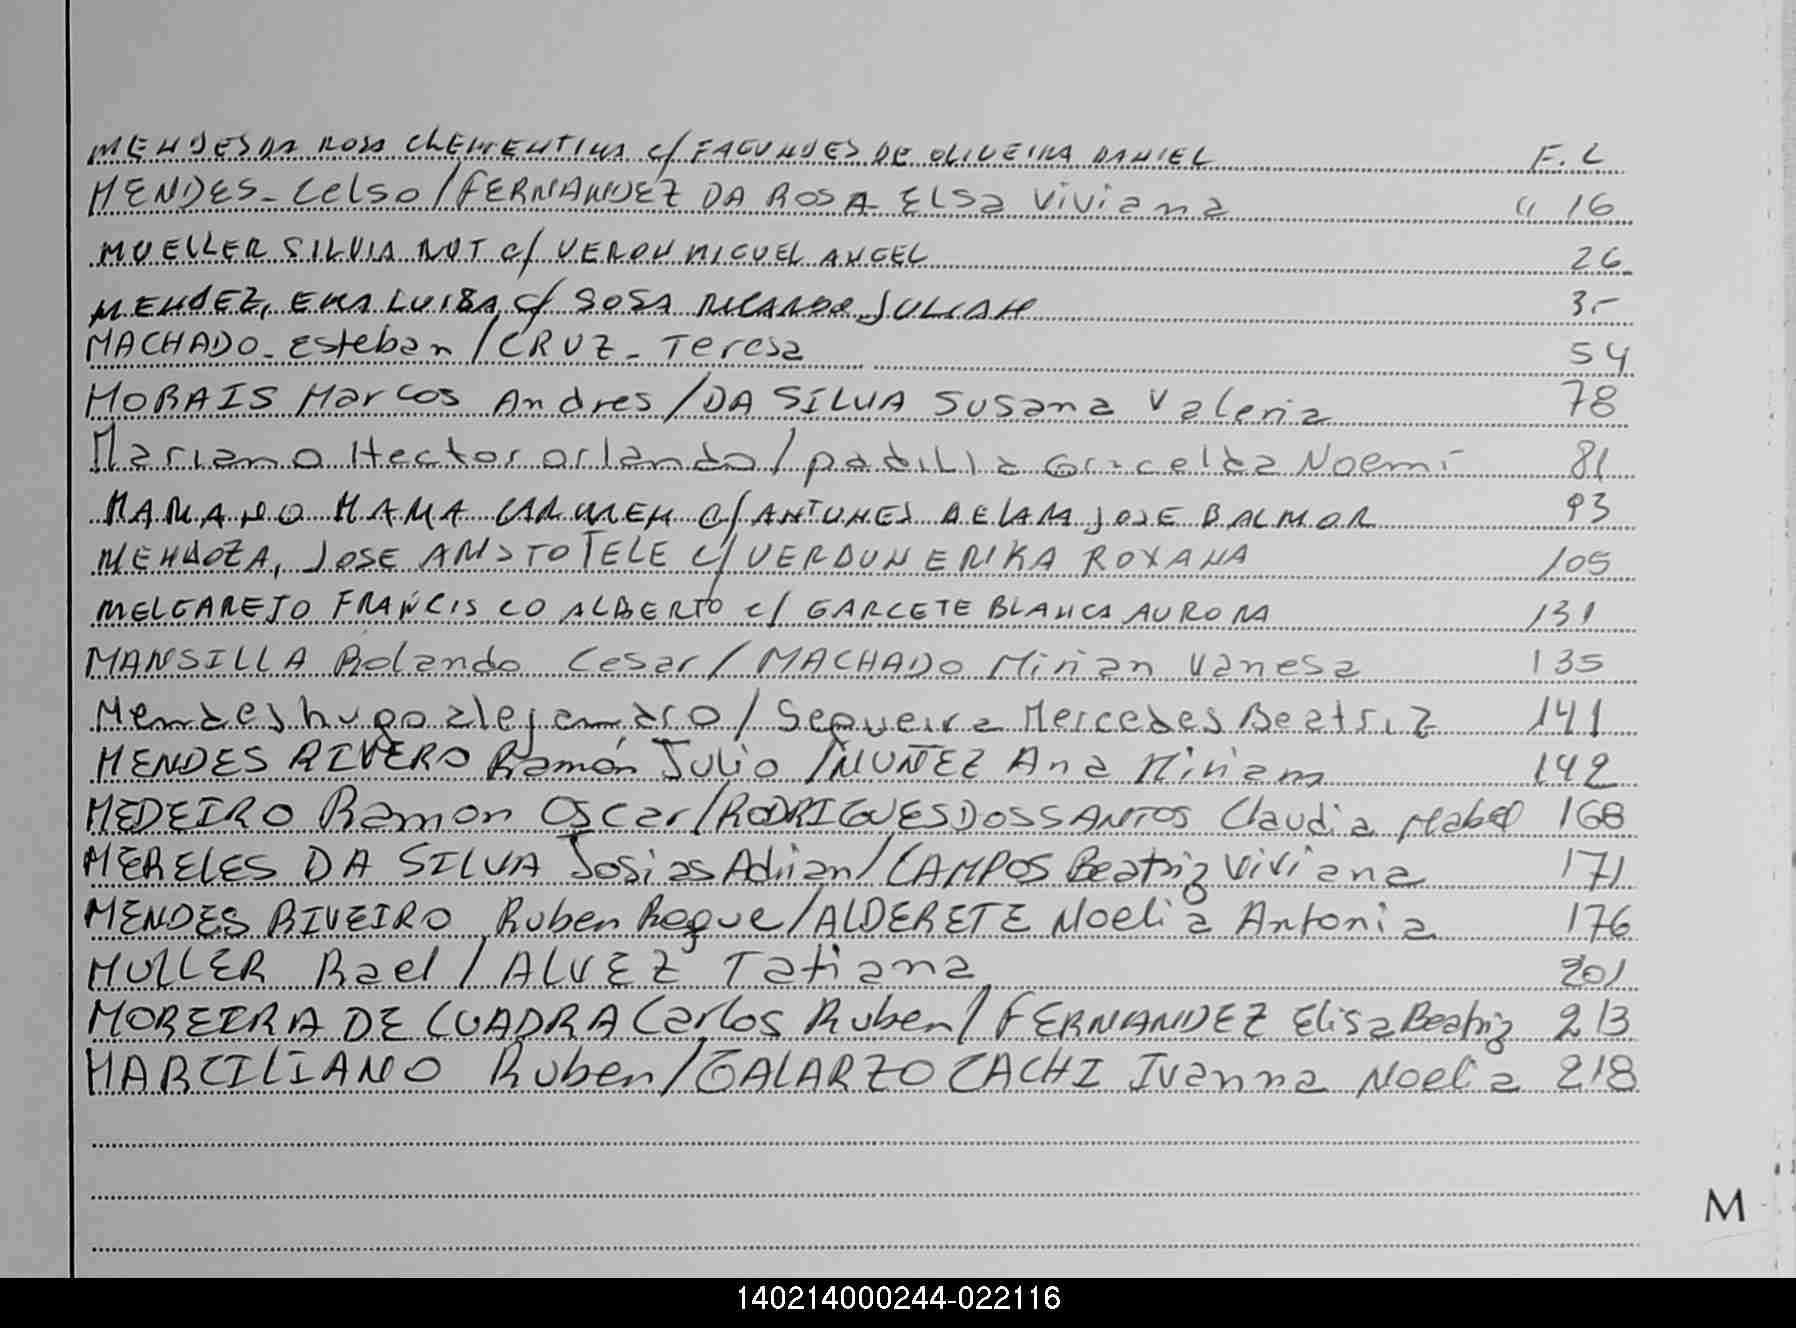 MENDES DA ROSA CLEMENTINA c/ FAGUNDES DE OLIVEIRA DANIEL F. 2
MENDES- Celso / FERNANDEZ DA ROSA ELSa Viviana " 16
MUELLER SILVIA RUT c/ VERON MIGUEL ANGEL 26
MENDEZ, EMA LUISA c/ SOSA RICARDO JULIAN 3-
MACHADO- Esteban / CRUZ- Teresa 54
MORAIS Marcos Andres / DA SILVA Susana Valeria 78
Mariano Hector orlando / padilla Gricelda Noemi 81
MARIANO MARIA CARMEN c/ ANTUNES BELAIR JOSE BALMOR 93
MENDOZA, JOSE ARISTOTELE c/ VERDUN ERIKA ROXANA 105
MELGAREJO FRANCISCO ALBERTO c/ GARCETE BLANCA AURORA 131
MANSILLA Rolando Cesar / MACHADO Mirian Vanesa 135
Mendes hugo alejandro / Sequeira Mercedes Beatriz 141
MENDES RIVERO Ramón Julio / NUÑEZ Ana Miriam 142
MEDEIRO Ramon Oscar / RODRIGUES DOS SANTOS Claudia Mabel 168
MERELES DA SILVA Josias Adrian / CAMPOS Beatriz Viviana 171
MENDES RIVEIRO Ruben Roque / ALDERETE Noelia Antonia 176
MULLER Rael / ALVEZ Tatiana 201
MOREIRA DE CUADRA Carlos Ruben / FERNANDEZ Elisa Beatriz 213
MARCILIANO Ruben / GALARZO CACHI Ivanna Noelia 218
M
140214000244-022116